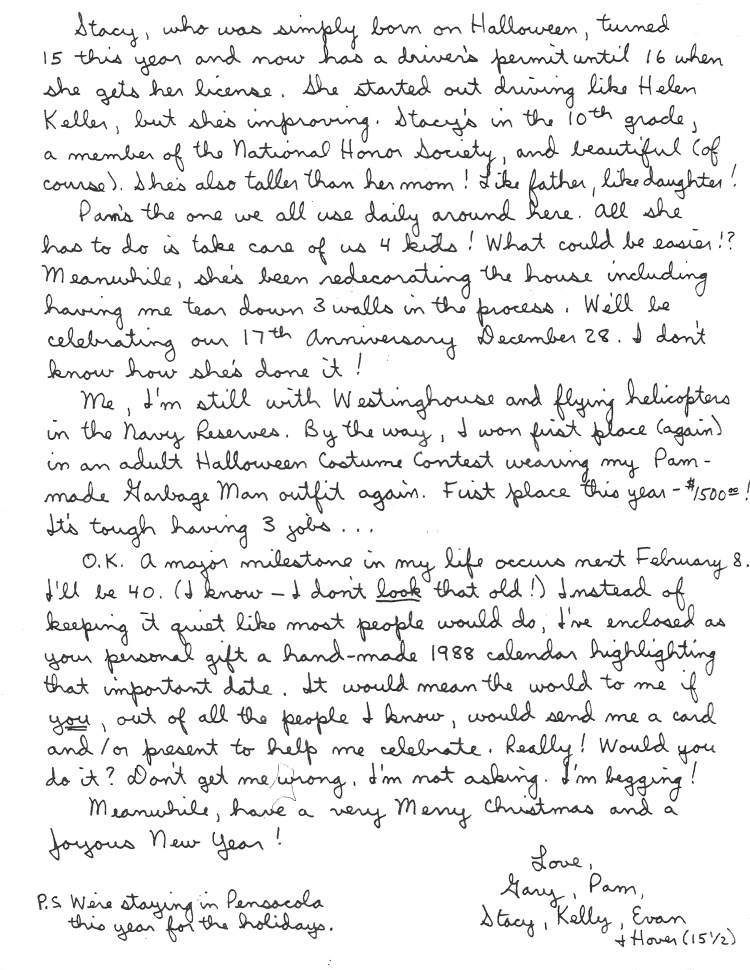 Stacy, who was simply born on Halloween, turned
15 this year and now has a driver's permit until 16 when
she gets her license. She started out driving like Helen
Keller, but she's improving. Stacy's in the 10th grade,
a member of the National Honor Society, and beautiful (of
course). She's also taller than her mom! Like father, like daughter!
Pam's the one we all use daily around here. All she
has to do is take care of us 4 kids! What could be easier!?
Meanwhile, she's been redecorating the house including
having me tear down 3 walls in the process. We'll be
celebrating our 17th Anniversary December 28. I don't
know how she's done it!
Me, I'm still with Westinghouse and flying helicopters
in the Navy Reserves. By the way, I won first place (again)
in an adult Halloween Costume Contest wearing my Pam-
made Garbage Man outfit again. First place this year - $1500.00!
It's tough having 3 jobs...
O.K. A major milestone in my life occurs next February 8.
I'll be 40. (I know - I don't look that old!) Instead of
keeping it quiet like most people would do, I've enclosed as
your personal gift a hand-made 1988 calendar highlighting
that important date. It would mean the world to me if
you, out of all the people I know, would send me a card
and/or present to help me celebrate. Really! Would you
do it? Don't get me wrong. I'm not asking. I'm begging!
Meanwhile, have a very Merry Christmas and a
Joyous New Year!
Love,
Gary, Pam,
Stacy, Kelly, Evan
+ Hover (15 1/2)
P.S. We're staying in Pensacola
this year for the holidays.